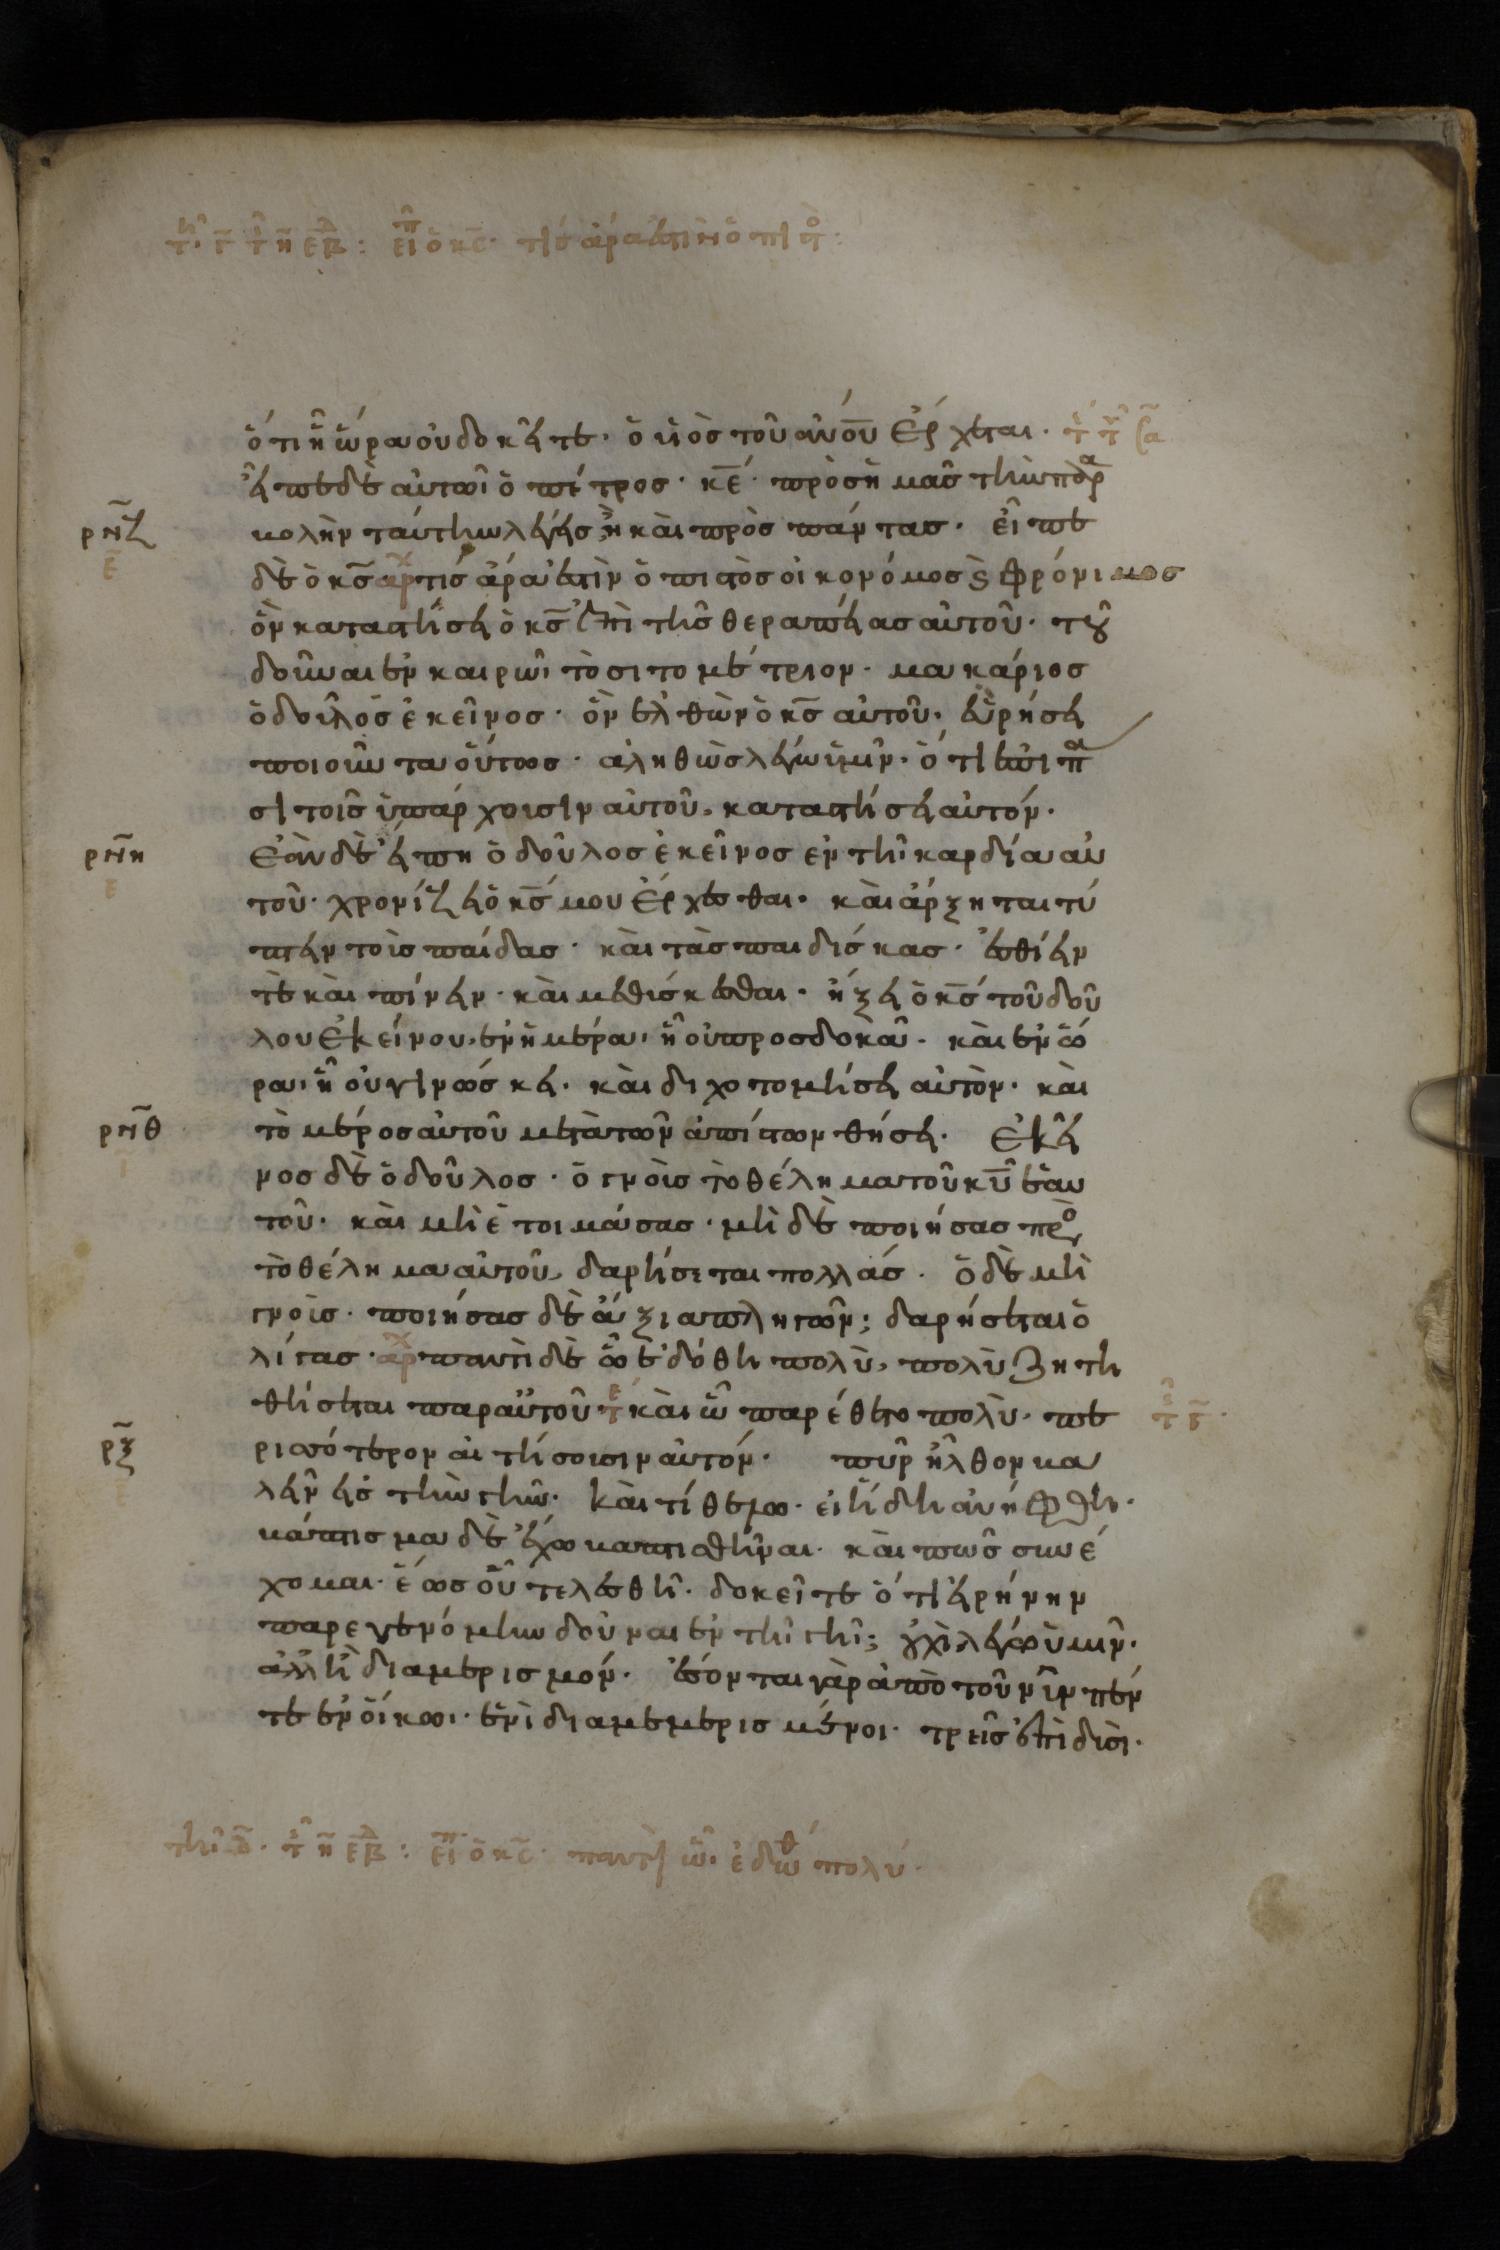 ὅτι ἧ ὥρα οὐ δοκεῖτε· ὁ υἱὸς τοῦ ἀνου ἔρχεται·
εἶπε δὲ αὐτῶ ὁ πέτρος· κε· πρὸς ἡμᾶς τὴν παρα
βολὴν ταύτην λέγεις; ἢ καὶ πρὸς πάντας· εἶπε
ρνζ
ε
δὲ ὁ κς τίς ἄρα ἐστὶν ὁ πιστὸς οἰκονόμος ϗ φρόνιμος
ὃν καταστήσει ὁ κς ἐπὶ τῆς θεραπείας αὐτοῦ· τοῦ
δοῦναι ἐν καιρῶ τὸ σιτομέτριον· μακάριος
ὁ δοῦλος ἐκεῖνος· ὃν ἐλθὼν ὁ κς αὐτοῦ· εὑρήσει
ποιοῦντα οὕτως· ἀληθῶς λέγω ὑμῖν· ὅτι ἐπὶ πα
σι τοῖς ὑπάρχουσιν αὐτοῦ, καταστήσει αὐτόν·
ρνη
ε
Ἐὰν δὲ εἴπη ὁ δοῦλος ἐκεῖνος ἐν τῆ καρδία αὐ
τοῦ· χρονίζει ὁ κς μου ἔρχεσθαι· καὶ ἄρξηται τύ
πτειν τοὺς παίδας· καὶ τὰς παιδίσκας· ἐσθίειν
τὲ καὶ πίνειν· καὶ μεθύσκεσθαι· ἥξει ὁ κς τοῦ δού
λου ἐκείνου, ἐν ἡμέρα, ἧ οὐ προσδοκᾶ· καὶ ἐν ὥ
ρα, ἧ οὐ γινώσκει· καὶ διχοτομήσει αὐτὸν· καὶ
ρνθ
τὸ μέρος αὐτοῦ μετὰ τῶν ἀπίστων θήσει· Ἐκεῖ
νος δὲ ὁ δοῦλος· ὁ γνοὺς τὸ θέλημα τοῦ κυ ἑαυ
τοῦ· καὶ μὴ ἑτοιμάσας· μὴ δὲ ποιήσας προς
τὸ θέλημα αὐτοῦ, δαρήσεται πολλάς· ὁ δὲ μὴ
γνοὺς· ποιήσας δὲ ἄξια πληγῶν; δαρήσεται ὀ
λίγας· παντὶ δὲ ὧ ἐδόθη πολὺ, πολὺ ζητη
θήσεται παρ αὐτοῦ καὶ ὧ παρέθεντο πολὺ· πε
ρξ
ρισσότερον αἰτήσουσιν αὐτόν· πῦρ ἦλθον βα
λεῖν εἰς τὴν γῆν· καὶ τί θέλω· εἰ ἤδη ἀνήφθη·
βάπτισμα δὲ ἔχω βαπτισθῆναι· καὶ πῶς συνέ
χομαι· ἕως οὗ τελεσθῆ· δοκεῖτε ὅτι εἰρήνην
παρεγενόμην δοῦναι ἐν τῆ γῆ; οὐχὶ λέγω ὑμῖν·
ἀλλ ἢ διαμερισμόν· ἔσονται γὰρ ἀπὸ τοῦ νῦν πέν
τε ἐν οἴκω· ἑνὶ διαμεμερισμένοι· τρεῖς ἐπὶ δυσὶ·